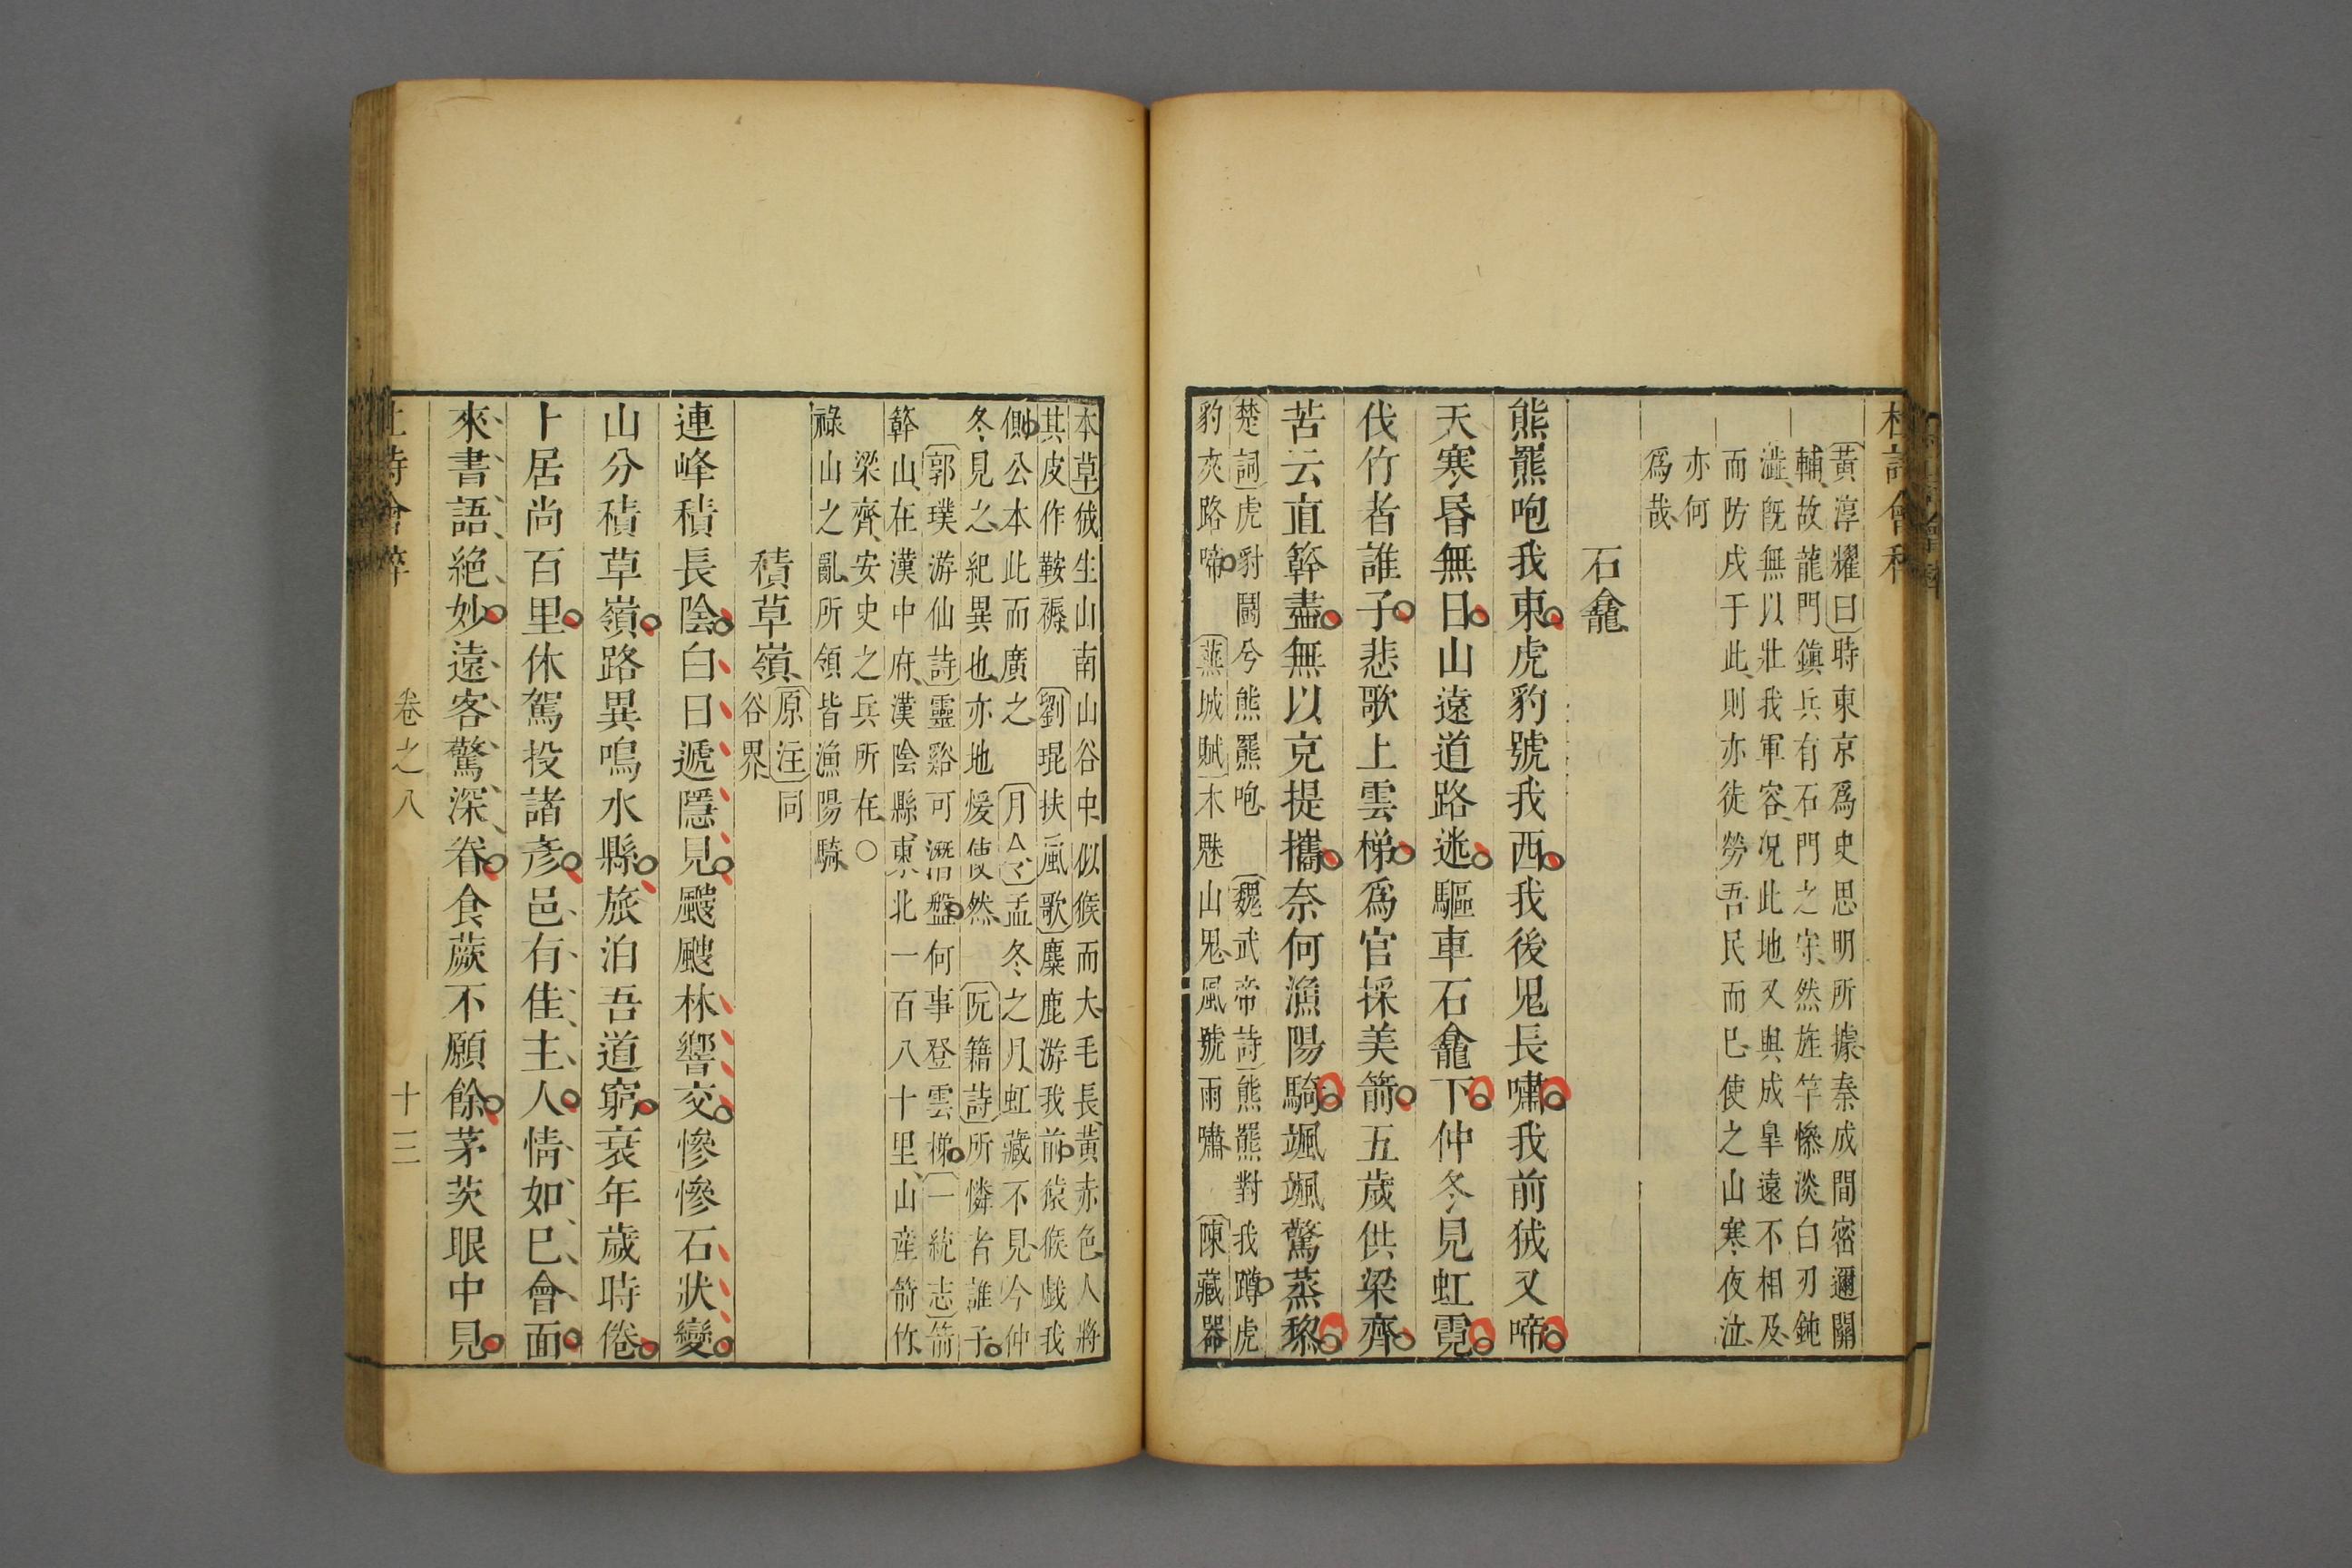 黃淳耀曰時東京爲史思明所據秦成間密邇關
輔故龍門鎮兵有石門之守然旌竿慘淡白刃鈍
澁旣無以壯我軍容况此地又與成皐遠不相及
而防戍于此則亦徒勞吾民而已使之山寒夜泣
亦何
爲哉
石龕
熊羆咆我東虎豹號我西我後鬼長嘯我前狨又啼
天寒昏無日山遠道路迷驅車石龕下仲冬見虹霓
伐竹者誰子悲歌上雲梯爲官採美箭五歲供梁齊
苦云直簳盡無以充提攜奈何漁陽騎颯颯驚蒸黎
楚詞虎豹鬭兮熊羆咆 魏武帝詩熊羆對我蹲虎
豹夾路啼 蕪城賦木魅山鬼風號雨嘯 陳藏器
本草狨生山南山谷中似猴而大毛長黃赤色人將
其皮作鞍褥 劉琨扶風歌麋鹿游我前猿猴戲我
側公本此而廣之 月令孟冬之月虹藏不見今仲
冬見之紀異也亦地煖使然 阮籍詩所憐者誰子
郭璞游仙詩靈谿可潛盤何事登雲梯 一統志箭
簳山在漢中府漢陰縣東北一百八十里山產箭竹
梁齊安史之兵所在○
祿山之亂所領皆漁陽騎
積草嶺原注同
谷界
連峰積長陰白日遞隱見颼颼林響交慘慘石狀變
山分積草嶺路異鳴水縣旅泊吾道窮衰年歲時倦
卜居尚百里休駕投諸彥邑有佳主人情如已會面
來書語絕妙遠客驚深眷食蕨不願餘茅茨眼中見
卷之八 十三